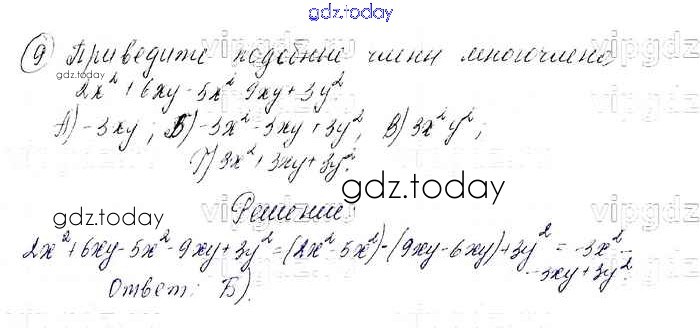 gdz.today
9) Приведите подобные члены многочлена
gdz.today
2x² + 6xy - 5x² 9xy + 3y².
А) -3xy ; Б) -3x² - 3xy + 3y²; В) 3x²y²;
Г) 3x² + 3xy + 3y².
gdz.today
gdz.today
Решение:
2x² + 6xy - 5x² - 9xy + 3y² = (2x² - 5x²) - (9xy - 6xy) + 3y² = -3x² -
- 3xy + 3y².
Ответ: Б).
gdz.today